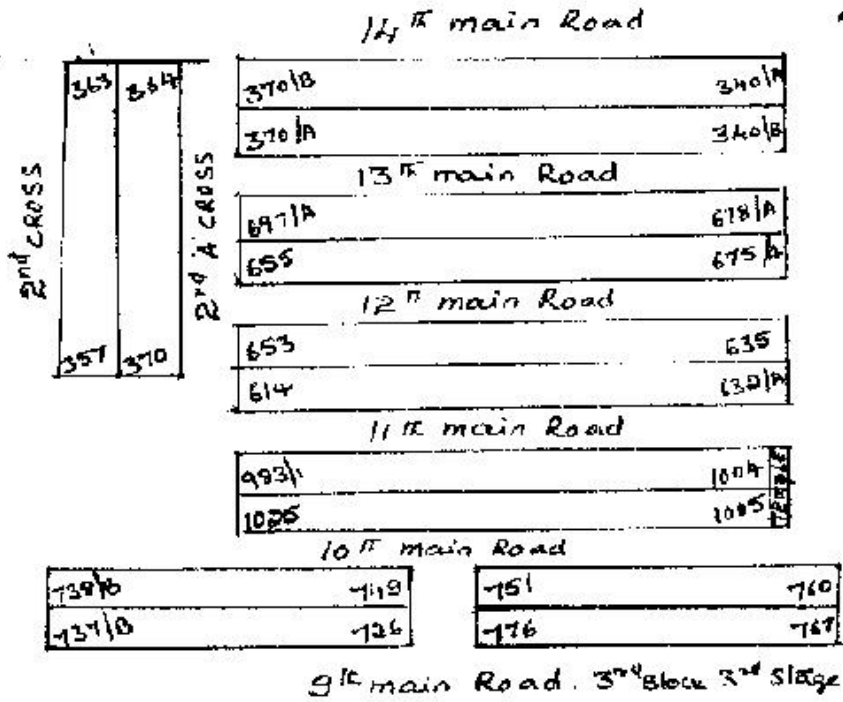 14th main Road
363 364
370/B 340/A
370/A 340/B
13th main Road
2nd CROSS
2nd A CROSS
697/A 678/A
655 675/A
12th main Road
653 635
357 370
614 632/A
11th main Road
983/1 1004
TEMPLE
1025 1005
10th main Road
738/B 749 751 760
737/B 726 776 767
9th main Road. 3rd Block 3rd Stage